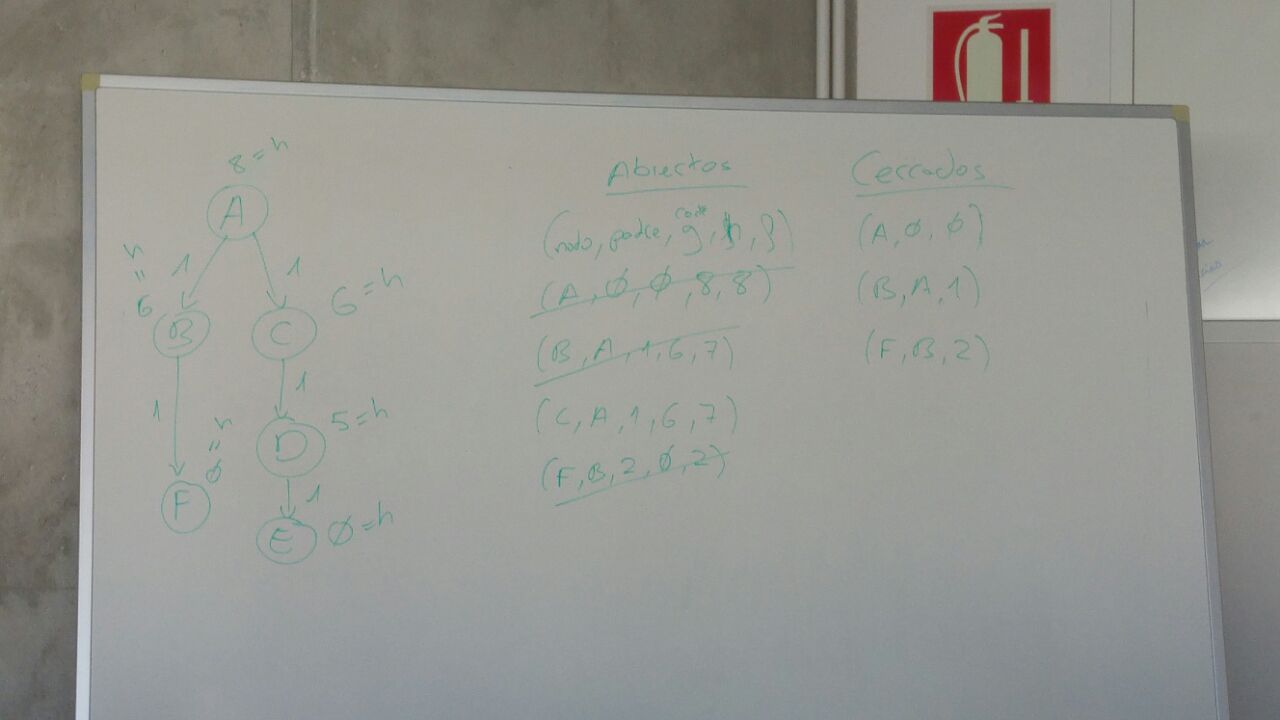 8=h
A
1
1
h = 6
B
C
6=h
1
1
D
5=h
h = Ø
F
1
E
Ø=h
Abiertos
(nodo, padre, coste g, h, f)
(A, Ø, Ø, 8, 8)
(B, A, 1, 6, 7)
(C, A, 1, 6, 7)
(F, B, 2, Ø, 2)
Cerrados
(A, Ø, Ø)
(B, A, 1)
(F, B, 2)